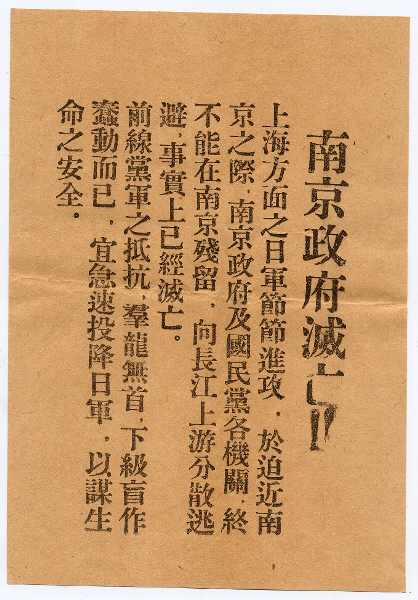 南京政府滅亡!!
上海方面之日軍節節進攻．於迫近南
京之際．南京政府及國民黨各機關．終
不能在南京殘留．向長江上游分散逃
避．事實上已經滅亡。
前線黨軍之抵抗．羣龍無首．下級盲作
蠢動而已．宜急速投降日軍．以謀生
命之安全．